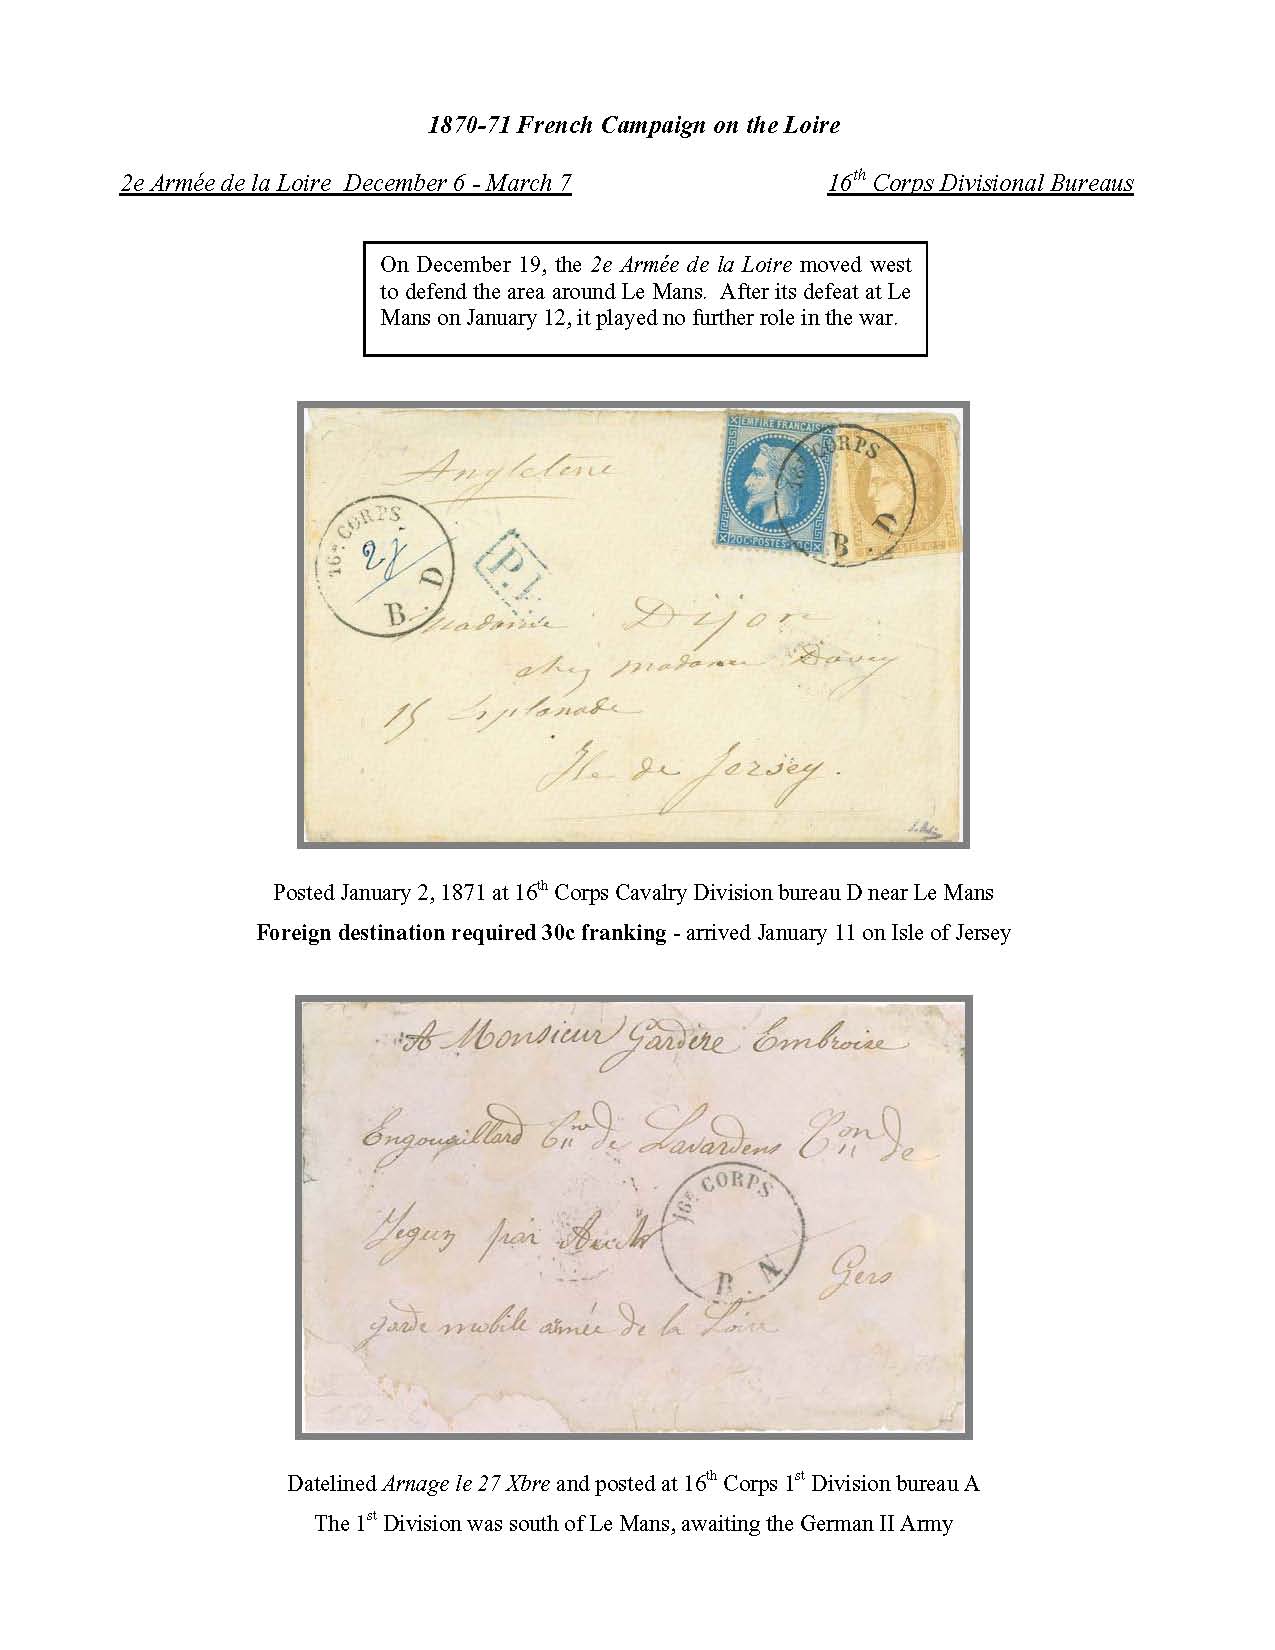 1870-71 French Campaign on the Loire
2e Armée de la Loire December 6 - March 7
16th Corps Divisional Bureaus
On December 19, the 2e Armée de la Loire moved west
to defend the area around Le Mans. After its defeat at Le
Mans on January 12, it played no further role in the war.
EMPIRE FRANÇAIS
20 C·POSTES·20 C
16e CORPS
B. D
Angleterre
16e CORPS
2 J
B. D
P.
Madame Dijon
chez madame Davey
15 Esplanade
Ile de Jersey.
Posted January 2, 1871 at 16th Corps Cavalry Division bureau D near Le Mans
Foreign destination required 30c franking - arrived January 11 on Isle of Jersey
A Monsieur Gardère Embroise
Engouaillard Cne de Lavardens Con de
Jegun par Auch
16e CORPS
Gers
garde mobile armée de la Loire
Datelined Arnage le 27 Xbre and posted at 16th Corps 1st Division bureau A
The 1st Division was south of Le Mans, awaiting the German II Army